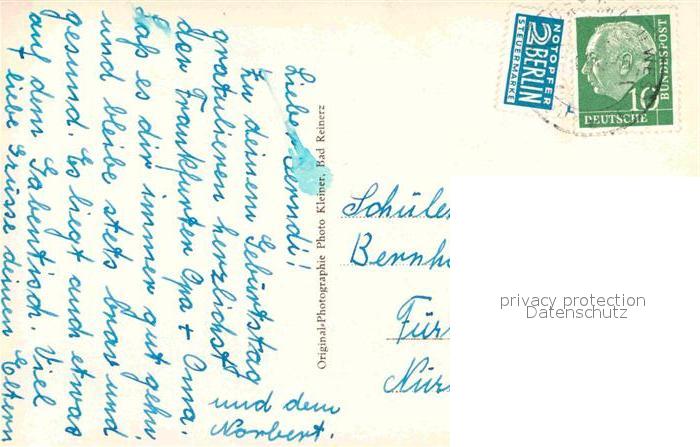 Liebe Bernndi!
Zu deinem Geburtstag
gratulieren herzlichst
der Frankfurter Opa + Oma.
Laß es dir immer gut gehn
und bleibe stets brav und
gesund. Es liegt auch etwas
auf dem Gabentisch. Viel
liebe Grüsse deinen Eltern
und dem
Norbert.
Original-Photographie Photo Kleiner, Bad Reinerz
NOTOPFER
2 BERLIN
STEUERMARKE
10
DEUTSCHE
BUNDESPOST
Schüle
Bernh
Für
Nür
privacy protection
Datenschutz